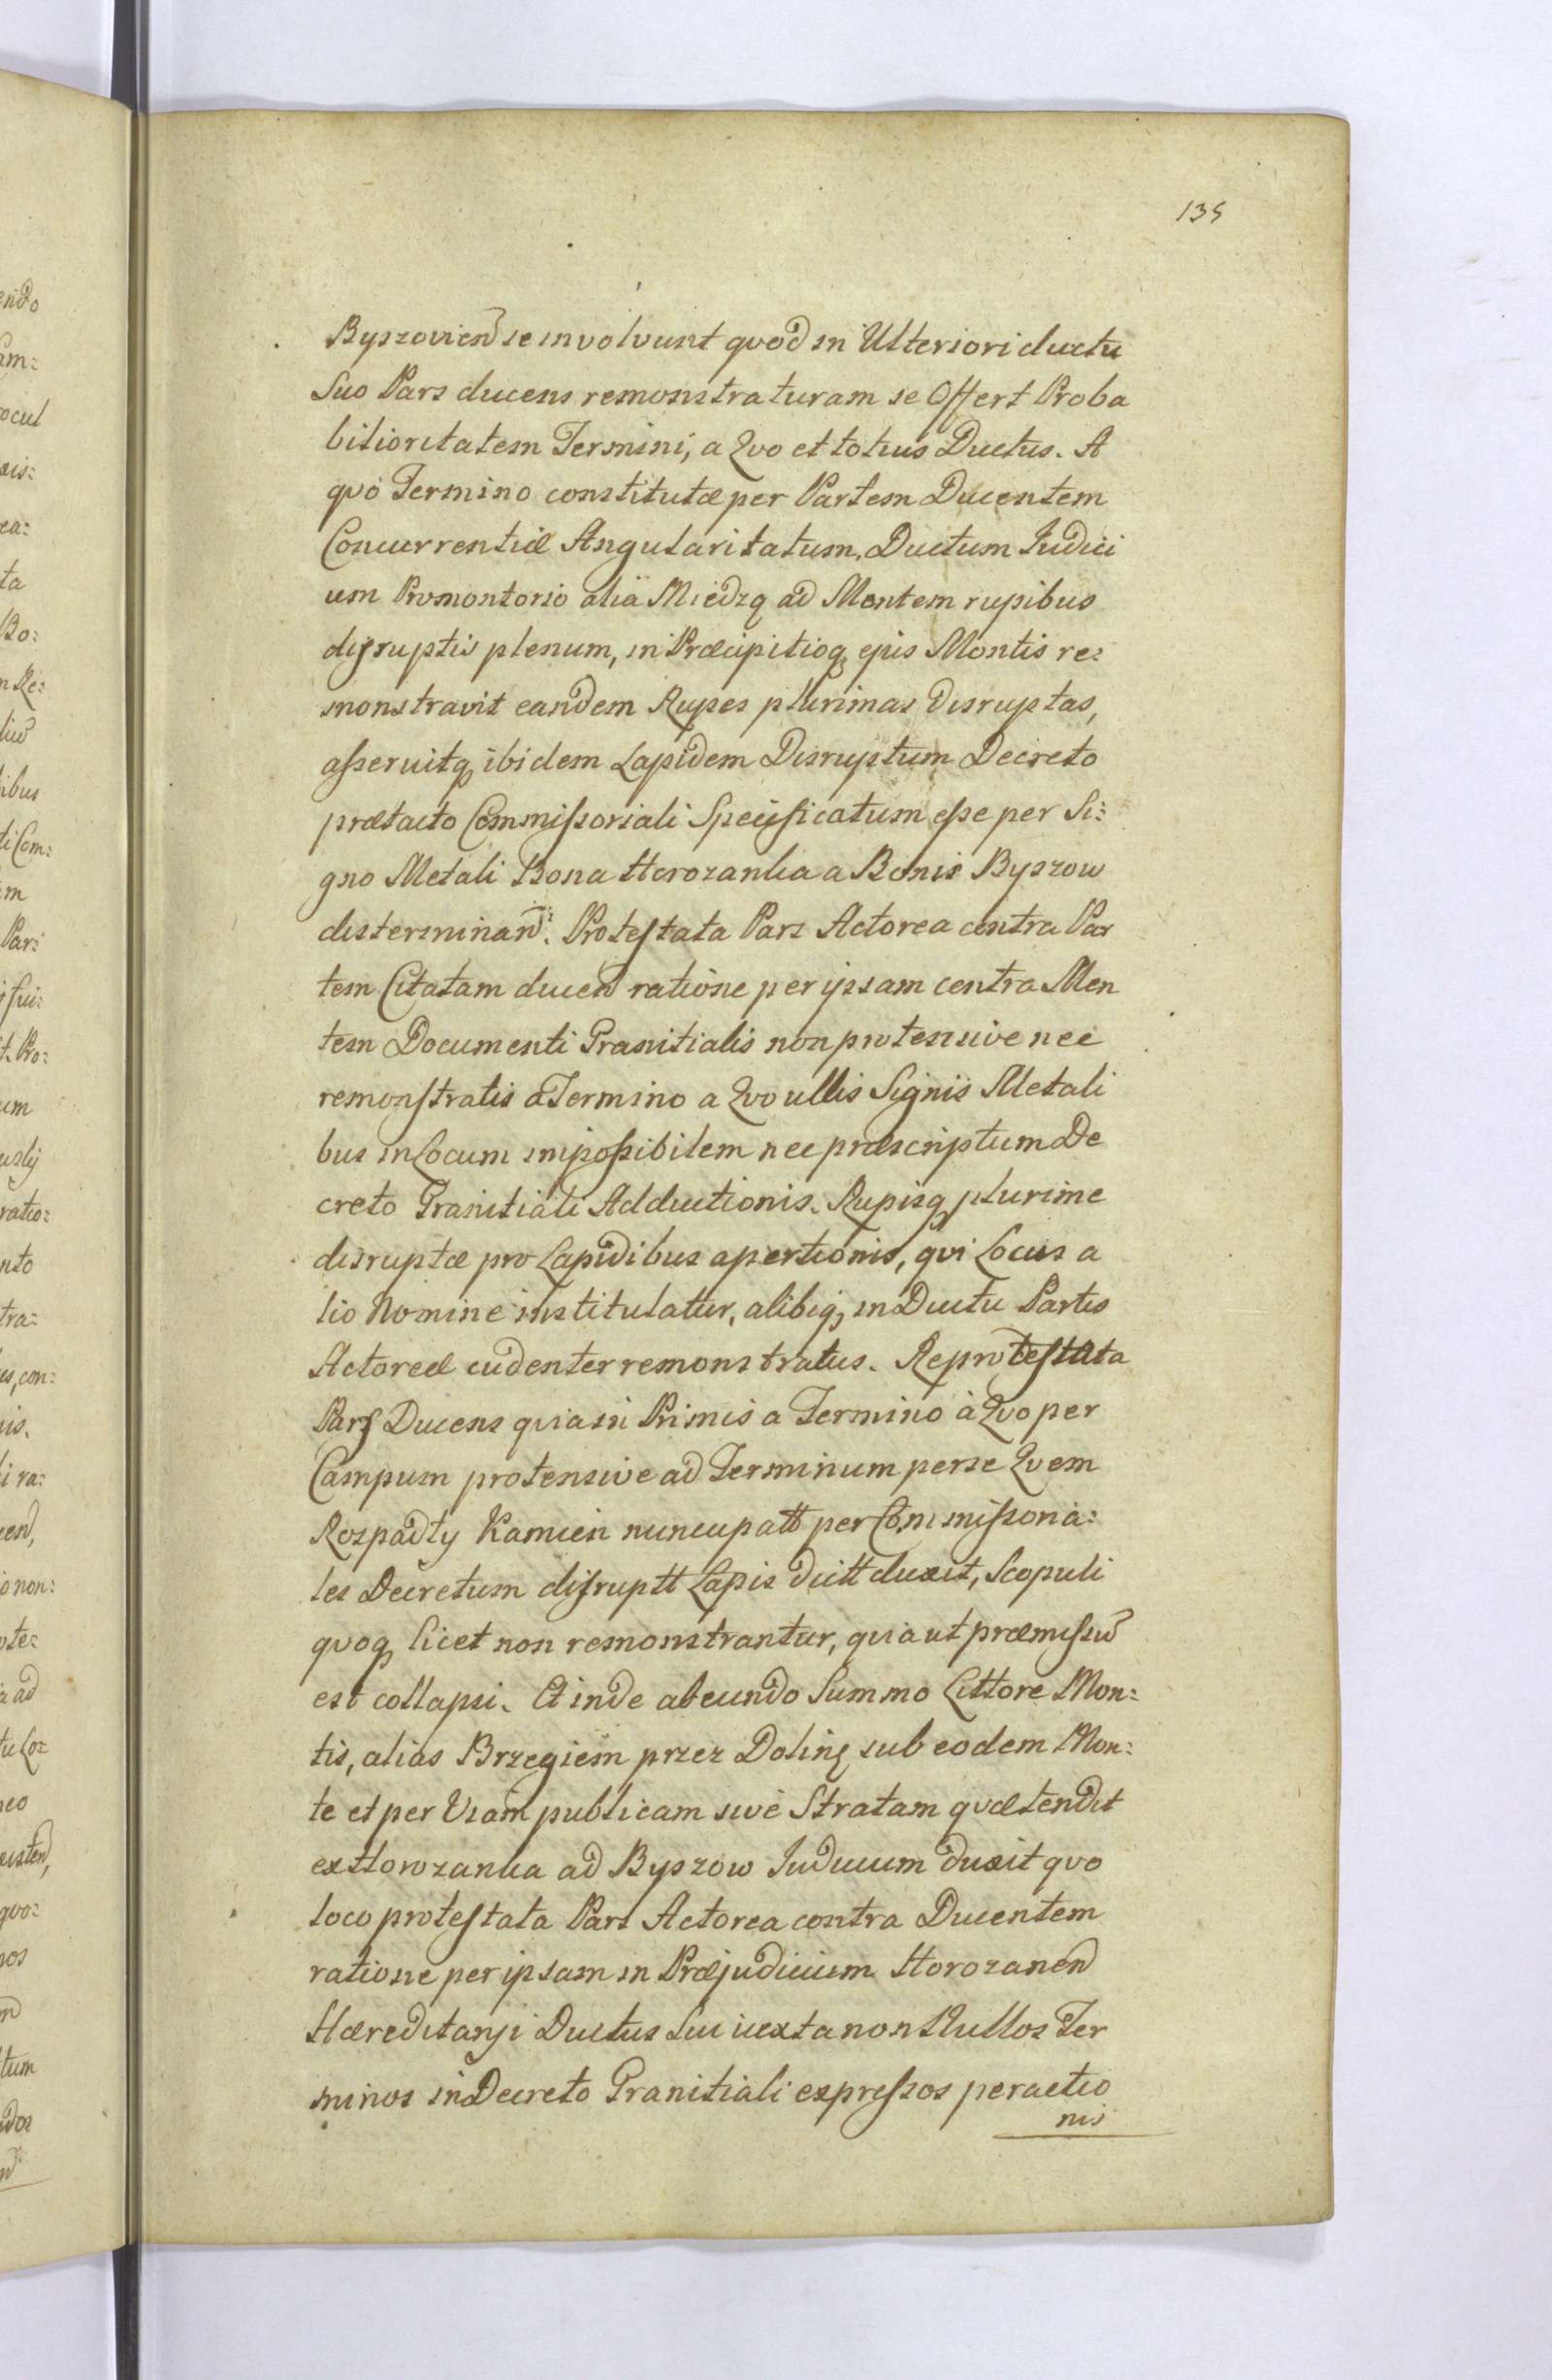 135
Byszovien se involvunt qvod in Ulteriori ductu
Suo Pars ducens remonstraturam se Offert Proba
bilioritatem Termini, a Qvo et totius Ductus. A
qvo Termino constitutæ per Partem Ducentem
Concurrentiæ Angularitatum, Ductum Judici
um Promontorio alia Miedzą ad Montem rupibus
disruptis plenum, in Præcipitioq ejus Montis re:
monstravit eandem Rupes plurimas Disruptas,
asseruitq ibidem Lapidem Disruptum Decreto
prætacto Commissoriali Specificatum esse per Si:
gno Metali Bona Horozanka a Bonis Byszow
disterminan. Protestata Pars Actorea contra Par
tem Citatam ducen ratione per ipsam contra Men
tem Documenti Granitialis non protensive nec
remonstratis a Termino a Qvo ullis Signis Metali
bus in Locum impossibilem nec præscriptum De
creto Granitiali Adductionis. Rupisq plurime
disruptæ pro Lapidibus apertionis, qvi Locus a
lio Nomine institulatur, alibiq, in Ductu Partis
Actoreæ eudenter remonstratus. Reprotestata
Pars Ducens qvia in Primis a Termino à Qvo per
Campum protensive ad Terminum per se Qvem
Rozpadły Kamien nuncupatt per Commissoria:
les Decretum disruptt Lapis dictt duxit, Scopuli
qvoq licet non remonstrantur, qvia ut præmissu
est collapsi. Et inde abeundo Summo Littore Mon:
tis, alias Brzegiem przez Dolinę sub eodem Mon:
te et per Viam publicam sive Stratam qvæ tendit
ex Horozanka ad Byszow Judicium duxit qvo
loco protestata Pars Actorea contra Ducentem
ratione per ipsam in Præjudicium Horozanen
Hæreditarji Ductus Sui iuxta non Nullos Ter
minos in Decreto Granitiali expressos peractio
nis